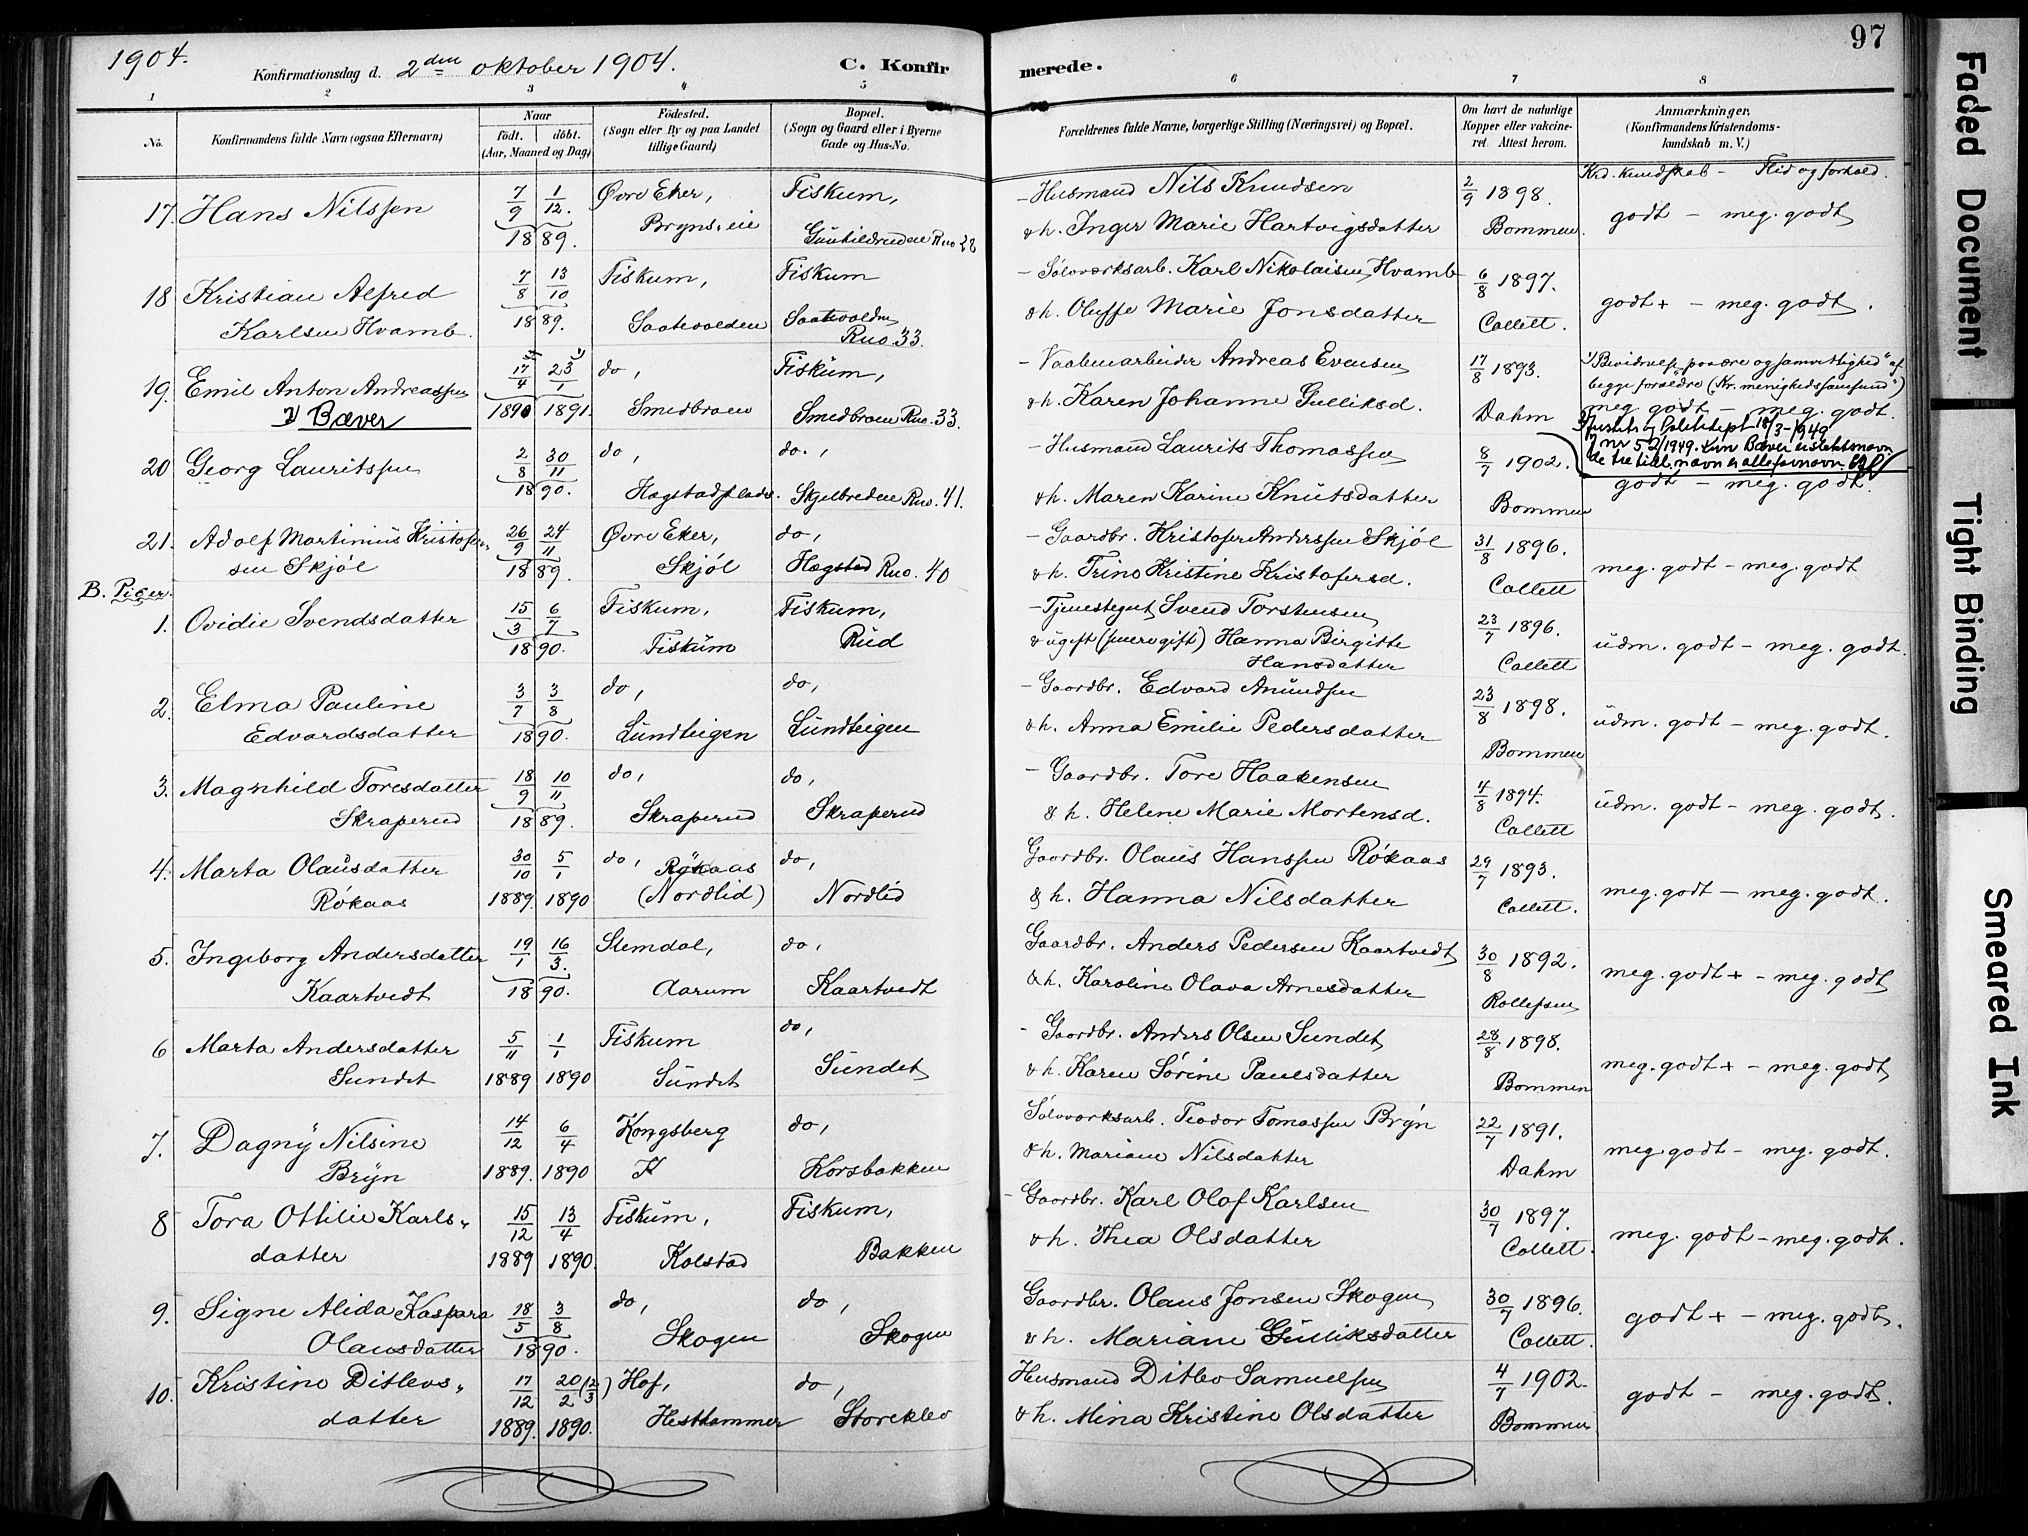 1904.
Konfirmationsdag d. 2den oktober 1904.
C. Konfirmerede.
97
1 2 3 4 5 6 7 8
No.
Konfirmandens fulde Navn (ogsaa Efternavn)
Naar
født. døbt.
(Aar, Maaned og Dag)
Fødested.
(Sogn eller By og paa Landet tillige Gaard)
Bopæl.
(Sogn og Gaard eller i Byerne Gade og Hus-No.
Forældrenes fulde Navne, borgerlige Stilling (Næringsvei) og Bopæl.
Om havt de naturlige Kopper eller vakcineret. Attest herom.
Anmærkninger.
(Konfirmandens Kristendomskundskab m. V.)
Krd. kundskab - Flid og forhold.
17. Hans Nilssen 7/9 1/12. 1889. Øvre Eker, Brynseie Fiskum, Rno 28
- Husmand Nils Knudsen & h. Inger Marie Hartvigsdatter 2/9 1898. Bommen. godt - meg. godt
18 Kristian Alfred Karlsen Hvamb. 7/8 13/10 1889. Fiskum, Saatvolden Fiskum Saatvolden Rno. 33.
- Sølvværksarb. Karl Nikolaisen Hvamb & h. Oluffe Marie Jonsdatter 6/8 1897. Collett. godt + - meg. godt.
19. Emil Anton Andreassen 2) Bæver 17/4 23/1 1890 1891. do, Smedbroen Fiskum, Smedbroen Rno. 33.
- Vaabenarbeider Andreas Evensen & h. Karen Johanne Gulliksd. 17/8 1893. Dahm
begge forældre (Kr. menighedssamfund")
meg godt - meg. godt.
18/3-1949
20 Georg Lauritssen 2/8 30/11 1890. do, Hagstadplads. do., Skjelbredeie Rno. 41.
- Husmand Laurits Thomassen & h. Maren Karine Knutsdatter 8/7 1902. Bommen godt - meg. godt.
21. Adolf Martinius Kristofersen Skjøl 26/9 24/11 1889. Øvre Eker, Skjøl do, Hagstad Rno. 40
- Gaardbr. Kristofer Anderssen Skjøl & h. Trine Kristine Kristofersd. 31/8 1896. Collett meg. godt - meg. godt
B. Piger.
1. Ovidie Svendsdatter 15/3 6/7 1890. Fiskum, Fiskum Fiskum, Rud
- Tjenestegut Svend Torstensen & ugift (senere gift) Hanna Birgitte Hansdatter 23/7 1896. Collett udm. godt - meg. godt.
2. Elma Pauline Edvardsdatter 3/7 3/8 1890. do, Lundteigen do, Lundteigen
- Gaardbr. Edvard Amundsen & h. Anna Emilie Pedersdatter 23/8 1898. Bommen udm. godt - meg. godt.
3. Magnhild Toresdatter Skraperud 18/9 10/11 1889. do, Skraperud do, Skraperud
- Gaardbr. Tore Haakensen & h. Helene Marie Mortensd. 4/8 1894. Collett udm. godt - meg. godt.
4. Marta Olausdatter Røkaas 30/10 5/1 1889. 1890 do, Røkaas (Nordlid) do, Nordlid
Gaardbr. Olaus Hanssen Røkaas & h. Hanna Nilsdatter 29/7 1893. Collett. meg. godt - meg. godt.
5. Ingeborg Andersdatter Kaartvedt 19/1 16/3. 1890. Slemdal, Aarum do, Kaartvedt
Gaardbr. Anders Pedersen Kaartvedt & h. Karoline Olava Arnesdatter 30/8 1892. Rollefsen meg. godt + - meg. godt
6 Marta Andersdatter Sundet 5/11 1/1 1889 1890 Fiskum Sundet do, Sundet
- Gaardbr. Anders Olsen Sundet & h. Karen Sørine Paulsdatter 28/8 1898. Bommen meg. godt + - meg. godt
7. Dagny Nilsine Bryn 14/12 6/4 1889. 1890 Kongsberg do, Korsbakken
Sølvværksarb. Teodor Tomassen Bryn & h. Mariane Nilsdatter 22/7 1891. Dahm meg godt - meg. godt.
8 Tora Ottilie Karlsdatter 15/12 13/4 1889 1890. Fiskum, Kolstad Fiskum, Bakken
- Gaardbr. Karl Olaf Karlsen & h. Thea Olsdatter 30/7 1897. Collett. meg. godt - meg. godt.
9. Signe Alida Kaspara Olausdatter 18/5 3/8 1890. do, Skogen do, Skogen
Gaardbr. Olaus Jonsen Skogen & h. Mariane Gulliksdatter 30/7 1896. Collett. godt + - meg. godt.
10. Kristine Ditlevsdatter 17/12 20/2 (12/3) 1889. 1890. Hof, Hesthammer do, Storeklev
Husmand Ditlev Samuelsen & h. Mina Kristine Olsdatter 4/7 1902. Bommen godt - meg. godt.
Faded Document
Tight Binding
Smeared Ink